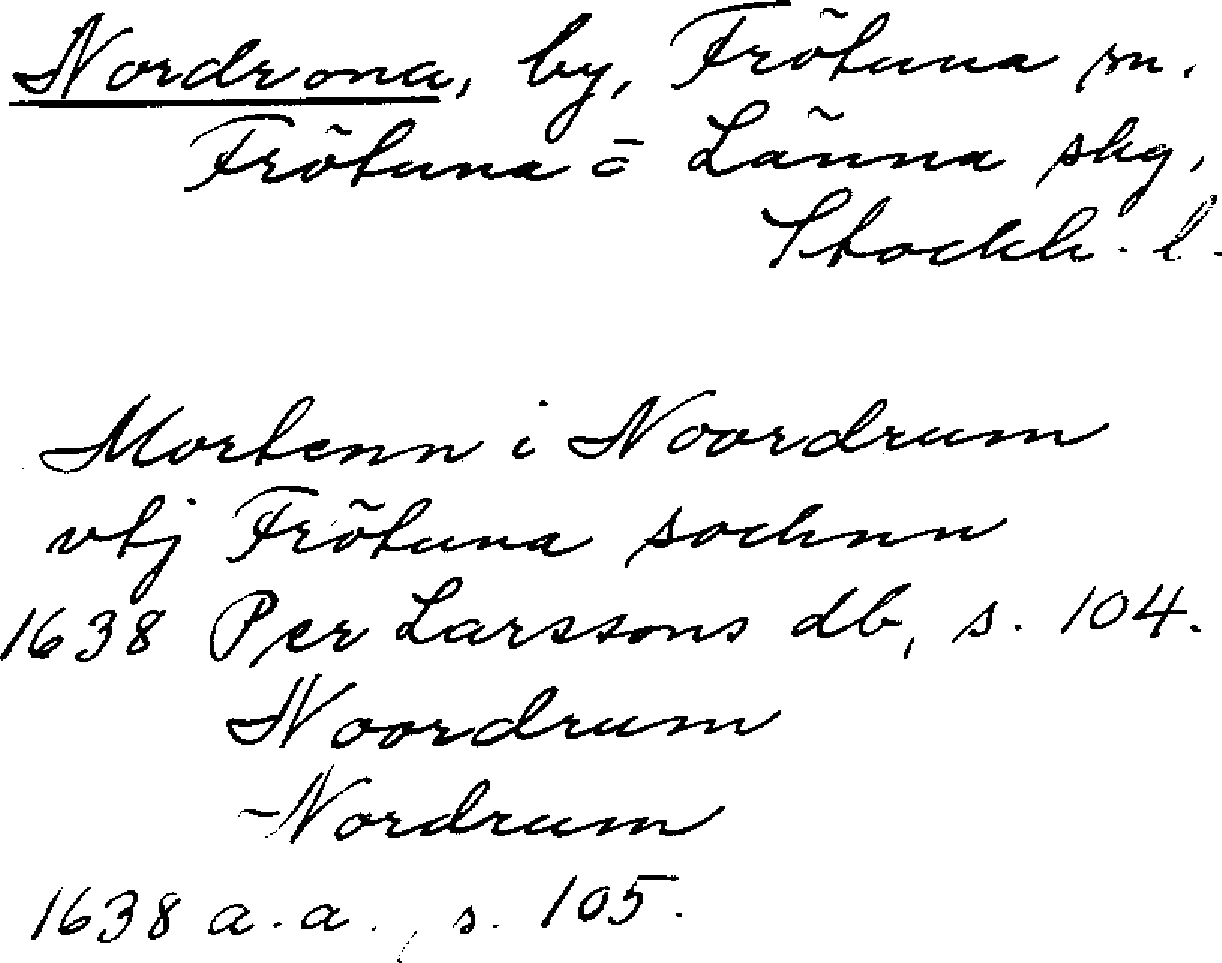 Nordrona, by, Frötuna sn.
Frötuna o Länna skg,
Stockh. l.
Mortenn i Noordrum
vtj Frötuna sochnn
1638 Per Larssons db, s. 104.
Noordrum
Nordrum
1638 a.a., s. 105.